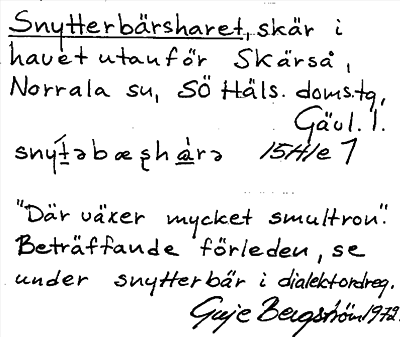 Snytterbärsharet, skär i
havet utanför Skärså,
Norrala sn, SÖ Häls. doms.tg,
Gävl. l.
snyt́əbæʂhàrə 15H1e 7
"Där växer mycket smultron".
Beträffande förleden, se
under snytterbär i dialektordreg.
Bergström 1972.